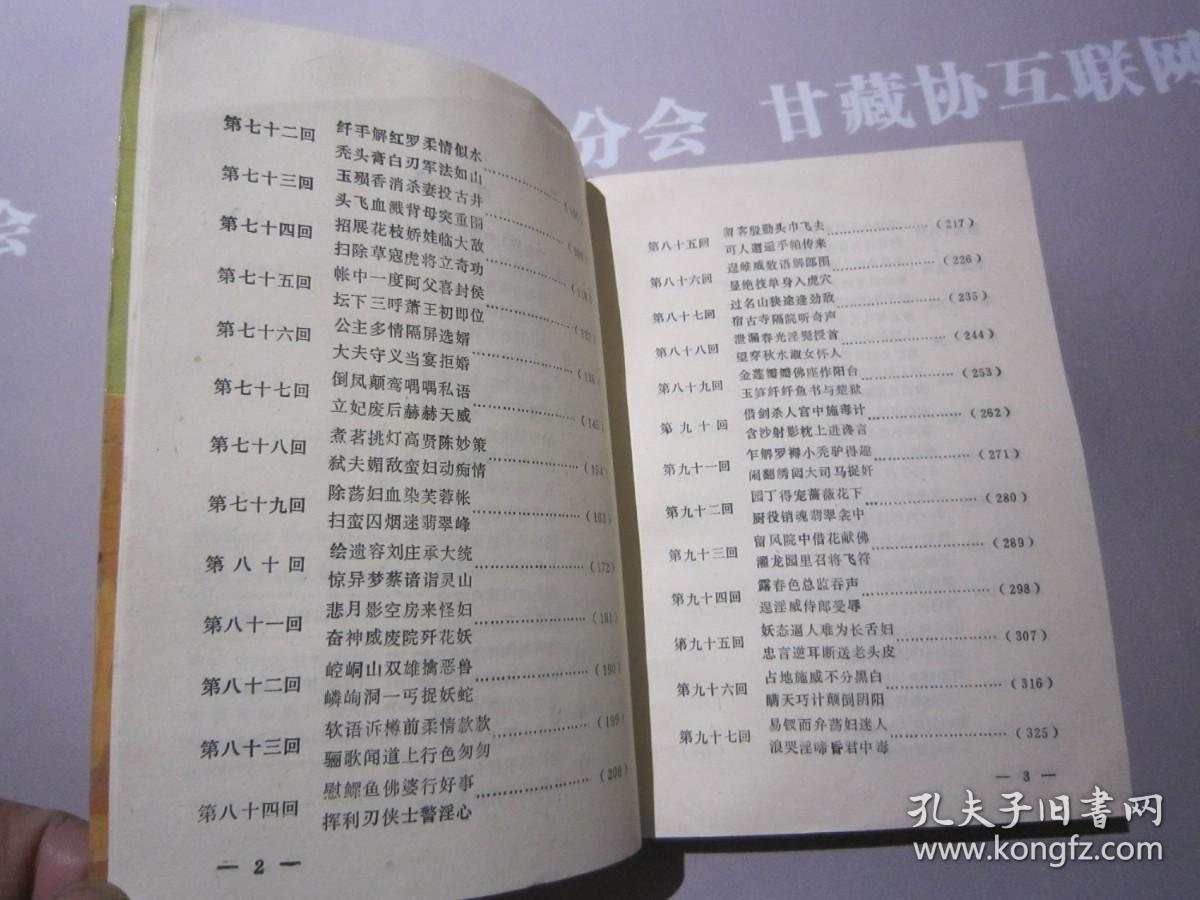 分会 甘藏协互联网
会
第七十二回 纤手解红罗柔情似水
秃头膏白刃军法如山
第七十三回 玉殒香消杀妻投古井
头飞血溅背母突重围
第七十四回 招展花枝娇娃临大敌
扫除草寇虎将立奇功
第七十五回 帐中一度阿父喜封侯
坛下三呼萧王初即位
第七十六回 公主多情隔屏选婿
大夫守义当宴拒婚
第七十七回 倒凤颠鸾喁喁私语 (145)
立妃废后赫赫天威
第七十八回 煮茗挑灯高贤陈妙策 (154)
弑夫媚敌蛮妇动痴情
第七十九回 除荡妇血染芙蓉帐 (163)
扫蛮囚烟迷翡翠峰
第八十回 绘遗容刘庄承大统 (172)
惊异梦蔡谙诣灵山
第八十一回 悲月影空房来怪妇 (181)
奋神威废院歼花妖
第八十二回 崆峒山双雄擒恶兽 (190)
嶙峋洞一丐捉妖蛇
第八十三回 软语诉樽前柔情款款 (199)
骊歌闻道上行色匆匆
第八十四回 慰鳏鱼佛婆行好事 (208)
挥利刃侠士警淫心
— 2 —
第八十五回 客殷勤头巾飞去 (217)
可人邂逅手帕传来
第八十六回 逞雌威数语解郎围 (226)
显绝技单身入虎穴
第八十七回 过名山狭途逢劲敌 (235)
宿古寺隔院听奇声
第八十八回 泄漏春光淫髡授首 (244)
望穿秋水淑女怀人
第八十九回 金莲瓣瓣佛座作阳台 (253)
玉笋纤纤鱼书与楚狱
第九十回 借剑杀人宫中施毒计 (262)
含沙射影枕上进谗言
第九十一回 乍解罗襟小秃驴得趣 (271)
闹翻绣闼大司马捉奸
第九十二回 园丁得宠蔷薇花下 (280)
厨役销魂翡翠衾中
第九十三回 留风院中借花献佛 (289)
濯龙园里召将飞符
第九十四回 露春色总监吞声 (298)
逞淫威侍郎受辱
第九十五回 妖态逼人难为长舌妇 (307)
忠言逆耳断送老头皮
第九十六回 占地施威不分黑白 (316)
瞒天巧计颠倒阴阳
第九十七回 易钗而弁荡妇迷人 (325)
浪哭淫啼昏君中毒
— 3 —
孔夫子旧书网
www.kongfz.com